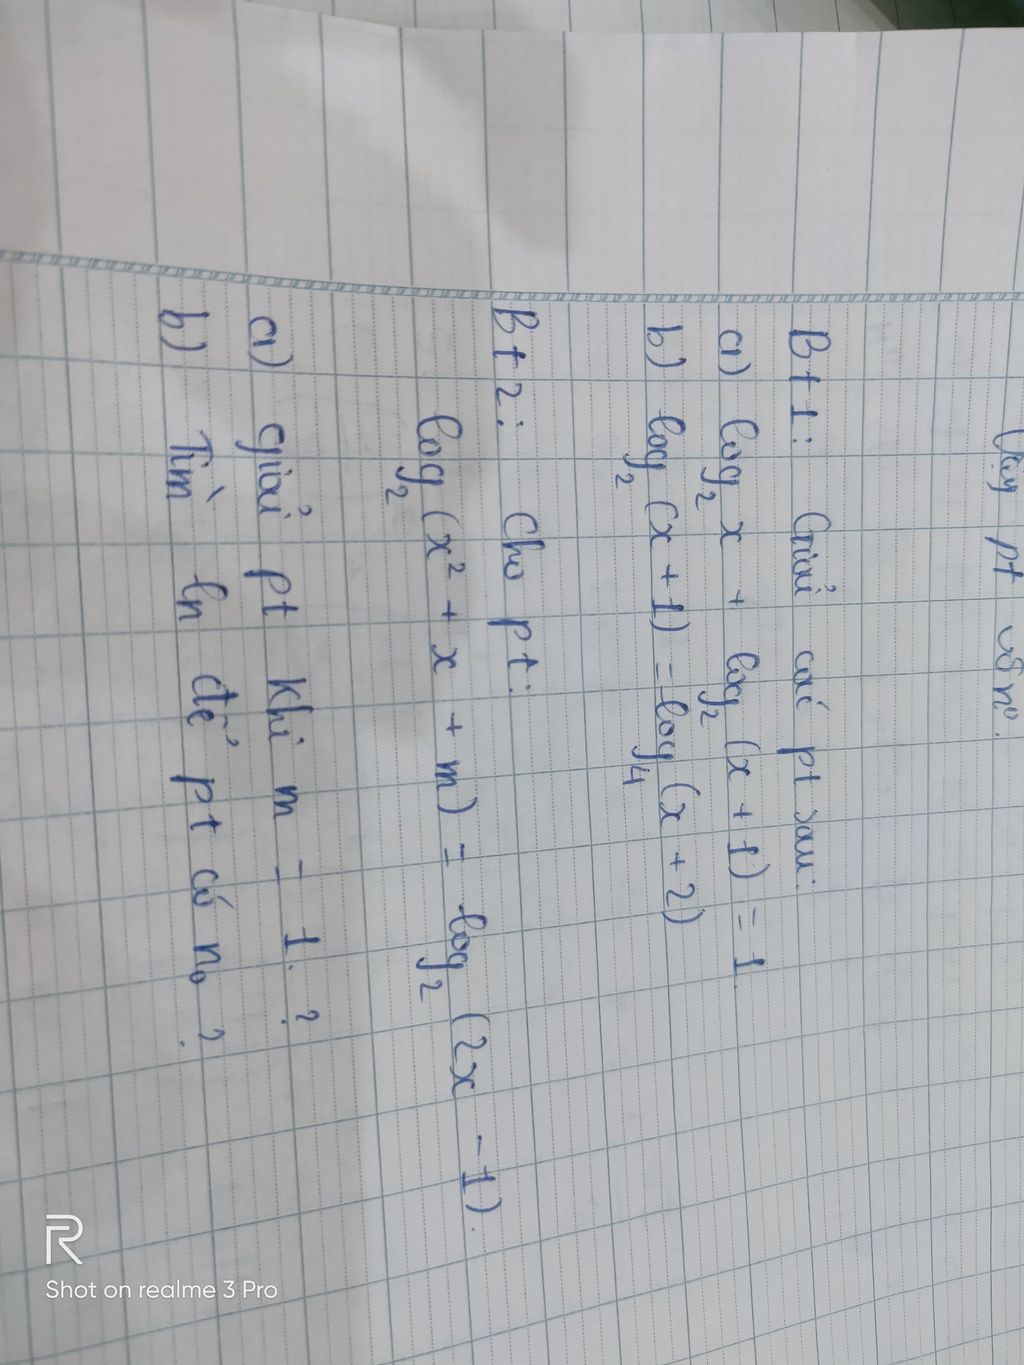 Vậy pt vô nº.
Bt 1: Giải các pt sau:
a) log₂ x + log₂ (x + 1) = 1
b) log₂ (x + 1) = log₄ (x + 2)
Bt 2: Cho pt:
log₂ (x² + x + m) = log₂ (2x - 1).
a) giải pt khi m = 1.?
b) Tìm m để pt có n₀?
R
Shot on realme 3 Pro